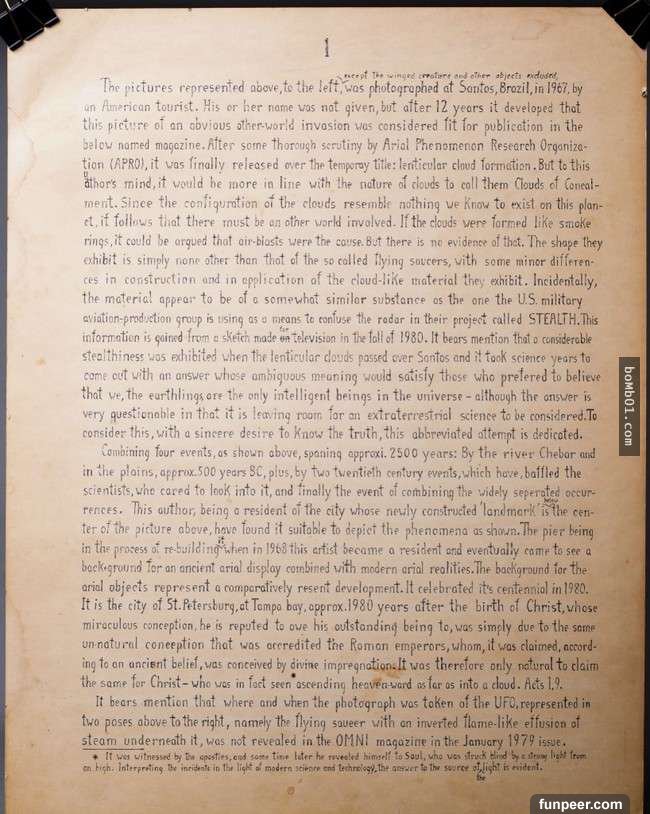 1
except the winged creature and other objects excluded,
The pictures represented above, to the left, was photographed at Santos, Brazil, in 1967, by
an American tourist. His or her name was not given, but after 12 years it developed that
this picture of an obvious other-world invasion was considered fit for publication in the
below named magazine. After some thorough scrutiny by Arial Phenomenon Research Organiza-
tion (APRO), it was finally released over the temporay title: lenticular cloud formation. But to this
author's mind, it would be more in line with the nature of clouds to call them Clouds of Conceal-
ment. Since the configuration of the clouds resemble nothing we know to exist on this plan-
et, it follows that there must be an other world involved. If the clouds were formed like smoke
rings, it could be argued that air-blasts were the cause. But there is no evidence of that. The shape they
exhibit is simply none other than that of the so called flying saucers, with some minor differen-
ces in construction and in application of the cloud-like material they exhibit. Incidentally,
the material appear to be of a somewhat similar substance as the one the U.S. military
aviation-production group is using as a means to confuse the radar in their project called STEALTH. This
information is gained from a sketch made on for television in the fall of 1980. It bears mention that a considerable
stealthiness was exhibited when the lenticular clouds passed over Santos and it took science years to
come out with an answer whose ambiguous meaning would satisfy those who prefered to believe
that we, the earthlings are the only intelligent beings in the universe - although the answer is
very questionable in that it is leaving room for an extraterrestrial science to be considered. To
consider this, with a sincere desire to know the truth, this abbreviated attempt is dedicated.
Combining four events, as shown above, spaning approxi. 2500 years: By the river Chebar and
in the plains, approx. 500 years BC, plus, by two twentieth century events, which have, baffled the
scientists, who cared to look into it, and finally the event of combining the widely seperated occur-
rences. This author, being a resident of the city whose newly constructed 'landmark' is below the cen-
ter of the picture above, have found it suitable to depict the phenomena as shown. The pier being
in the process of re-building it when in 1968 this artist became a resident and eventually came to see a
background for an ancient arial display combined with modern arial realities. The background for the
arial objects represent a comparatively resent development. It celebrated it's centennial in 1980.
It is the city of St. Petersburg, at Tampa bay, approx. 1980 years after the birth of Christ, whose
miraculous conception, he is reputed to owe his outstanding being to, was simply due to the same
un-natural conception that was accredited the Roman emperors, whom, it was claimed, accord-
ing to an ancient belief, was conceived by divine impregnation. It was therefore only natural to claim
the same for Christ - who was in fact seen ascending heaven-ward as far as into a cloud. Acts 1,9.
It bears mention that where and when the photograph was taken of the UFO, represented in
two poses above to the right, namely the flying saucer with an inverted flame-like effusion of
steam underneath it, was not revealed in the OMNI magazine in the January 1979 issue.
* It was witnessed by the apostles, and some time later he revealed himself to Saul, who was struck blind by a strong light from
on high. Interpreting the incidents in the light of modern science and technology, the answer to the source of the light is evident.
bomb01.com
funpeer.com